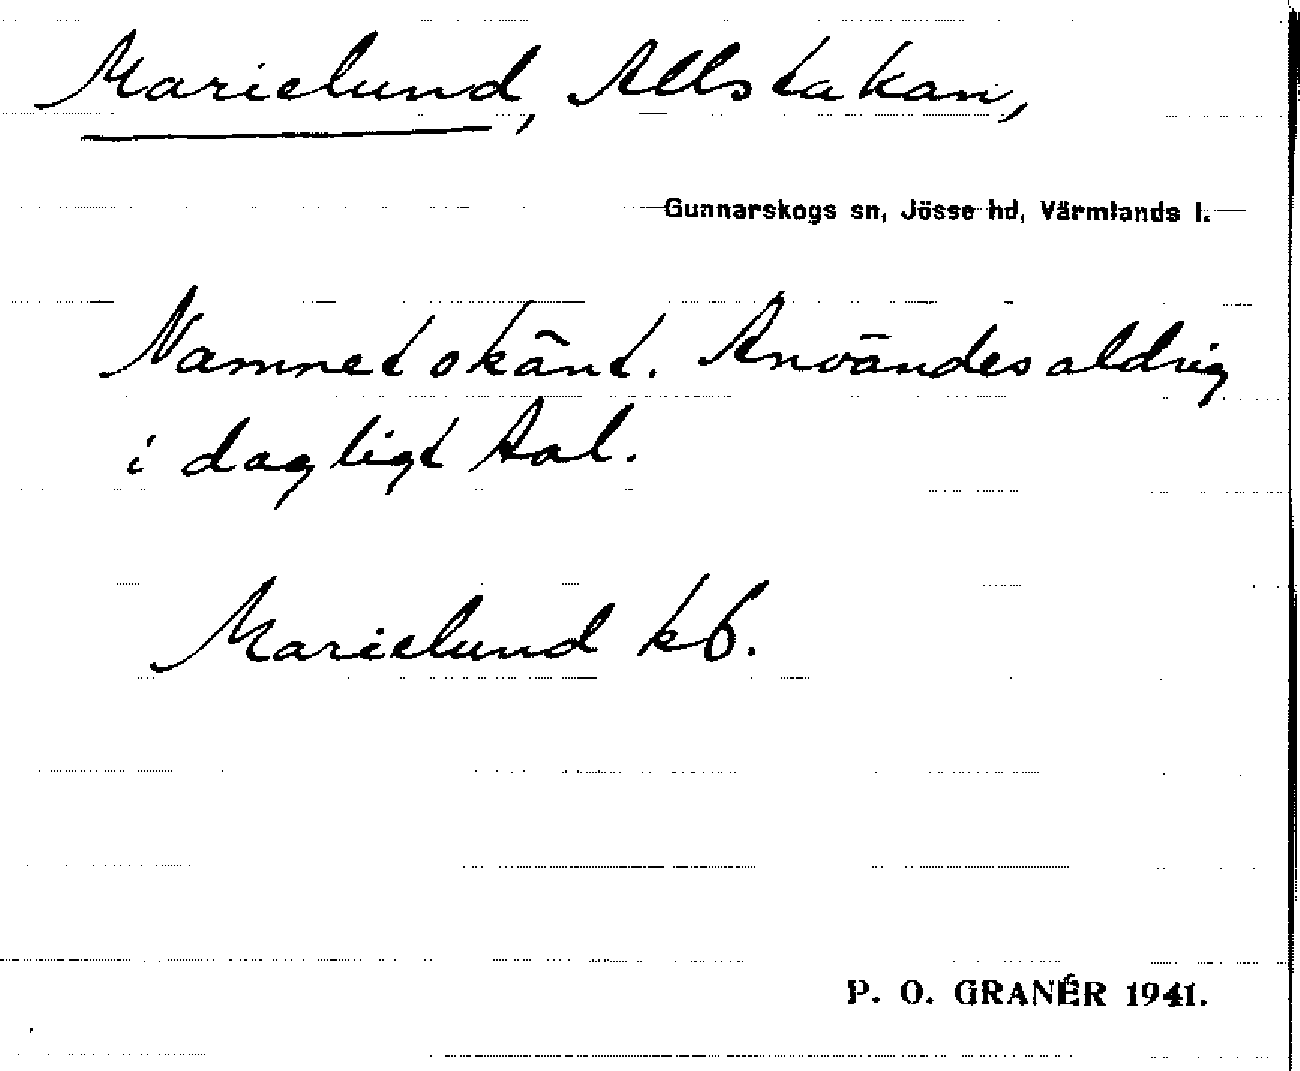 Marielund, Allstakan,
Gunnarskogs sn, Jösse hd, Värmlands l.
Namnet okänt. Användes aldrig
i dagligt tal.
Marielund kb.
P. O. GRANÉR 1941.